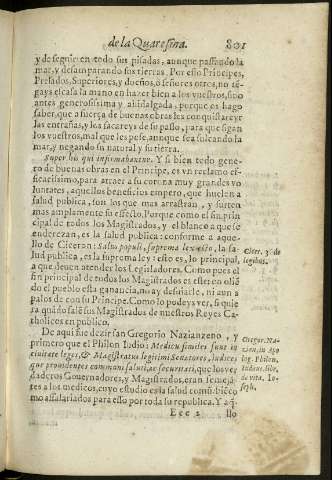 de la Quaresma. 801
y de seguir en todo sus pisadas, aunque passando la
mar, y desamparando sus tierras. Por esso Principes,
Prelados, Superiores, y dueños, o señores otros, no
gays elcasa la mano en hazer bien a los vuestros, sino
antes generosissima y ahidalgada, porque os hago
saber, que a fuerça de buenas obras les conquistareys
las entrañas, y les sacareys de su passo, para que sigan
los vuestros, mal que les pese, aunque sea sulcando la
mar, y negando su natural y su tierra.
Super his qui infirmabantur. Y si bien todo gene-
ro de buenas obras en el Principe, es vn reclamo ef-
ficacissimo, para atraer a su corona muy grandes vo
luntades, aquellos beneficios empero, que huelen a
salud publica, son los que mas arrastran, y surten
mas amplamente su efecto. Porque como el fin prin
cipal de todos los Magistrados, y el blanco a que se
enderezan, es la salud publica: conforme a aque-
llo de Ciceron: Salus populi, suprema lex esto, la sa-
lud publica, es la suprema ley: esto es, lo principal,
a que deuen atender los Legisladores. Como pues el
fin principal de todos los Magistrados es este: en olie
do el pueblo esta ganancia, no ay desuiarle, ni aun a
palos de con su Principe. Como lo podeys ver, si quie
ra quando sale sus Magistrados de nuestros Reyes Ca-
tholicos en publico.
De aqui fue dezir san Gregorio Nazianzeno, y
primero que el Philon Iudio: Medicis similes sunt in
ciuitate leges, & Magistratus legitimi Senatores, Iudices
que prouidentes communi saluti, ac securitati, que los ver
daderos Gouernadores, y Magistrados, eran semeja-
tes a los medicos, cuyo estudio es la salud comu: bie co
mo assalariados para esso por toda su republica. Y aq̃
Eee 2 llo
Cicer. 3. de
legibus.
Gregor. Na-
zian. in apo
log. Philon.
Iudæus. libr.
de vita, Io-
seph.